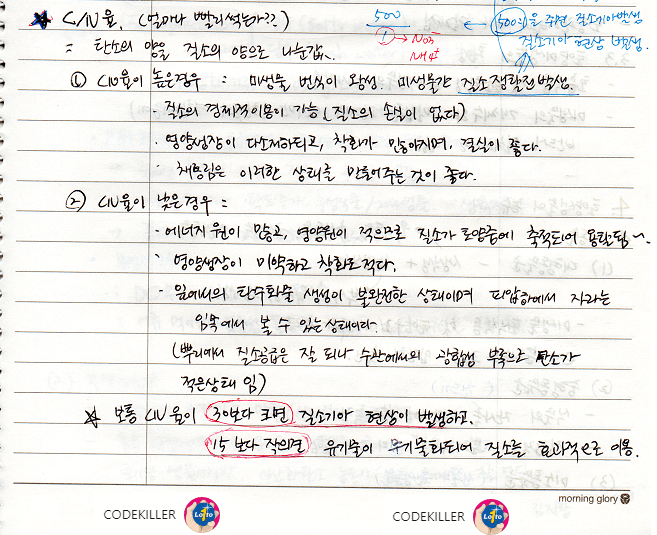 ★ C/N율. (얼마나 빨리썩는가??)
500
1 → NO3
NH4+
500:1을 주면 질소기아발생
질소기아 현상 발생.
= 탄소의 양을 질소의 양으로 나눈값..
① C/N율이 높은경우 : 미생물 번식이 왕성. 미생물간 질소쟁탈전발생.
· 질소의 경제적이용이 가능 (질소의 손실이 없다)
· 영양생장이 다소저하되고, 착화가 많아지며, 결실이 좋다.
· 채종림은 이러한 상태를 만들어주는 것이 좋다.
② C/N율이 낮은경우 =
· 에너지원이 많고, 영양원이 적으므로 질소가 토양중에 축적되어 용탈됨~.
· 영양생장이 미약하고 착화도적다.
· 잎에서의 탄수화물 생성이 불완전한 상태이며 피압하에서 자라는
임목에서 볼 수 있는상태이다.
(뿌리에서 질소공급은 잘 되나 수관에서의 광합성 부족으로 탄소가
적은상태 임)
★ 보통 C/N율이 30보다 크면 질소기아 현상이 발생하고.
15보다 작으면 유기물이 무기물화되어 질소를 효과적으로 이용.
morning glory
CODEKILLER Lotto
CODEKILLER Lotto